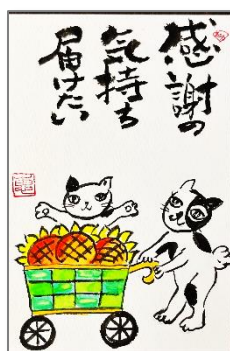 感謝の
気持ち
届けたい